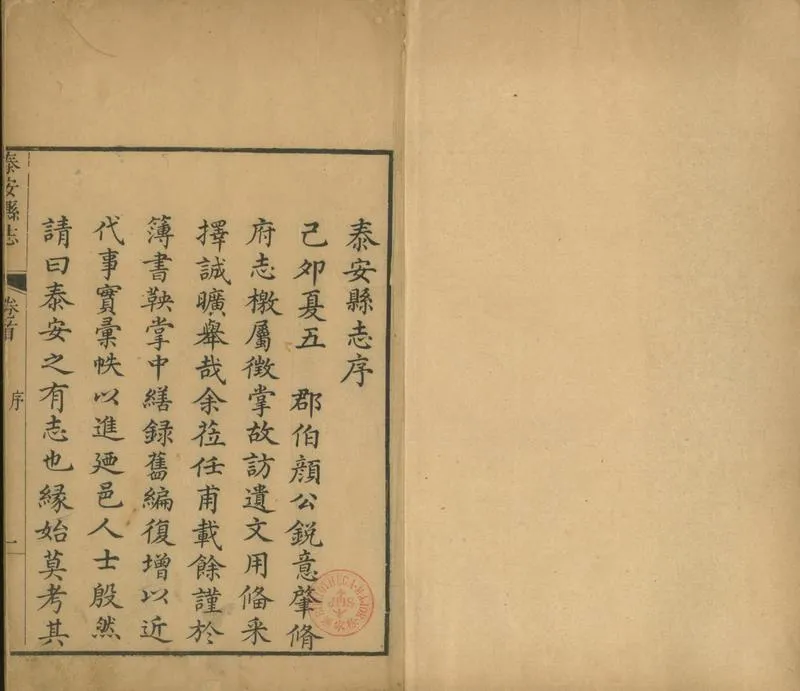 泰安縣志序
己卯夏五 郡伯顏公銳意肇脩
府志檄屬徵掌故訪遺文用俻采
擇誠曠舉哉余莅任甫載餘謹於
簿書鞅掌中繕録舊編復增以近
代事實彙帙以進廼邑人士殷然
請曰泰安之有志也緣始莫考其
泰安縣志
卷首
序
一